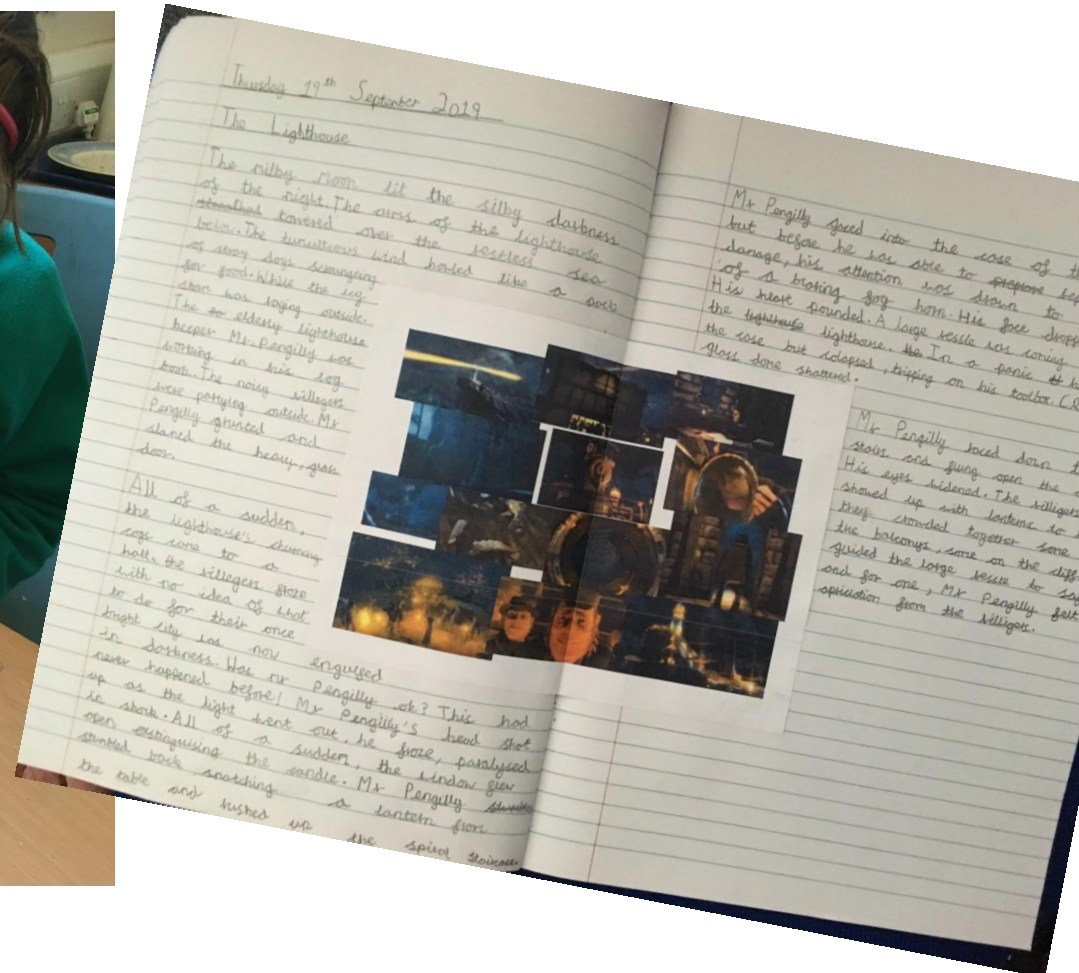 Thursday 19th September 2019
The Lighthouse
The milky moon lit the silky darkness
of the night. The arms of the lighthouse
towered over the restless sea
below. The tumultious wind howled like a pack
of stray dogs scroungeing
for food. While the icy
storm was raging outside.
The elderly lighthouse
keeper Mr. Pengilly was
working in his log
book. The noisy villegers
were partying outside. Mr
Pengilly grunted and
slamed the heavy, glass
door.
All of a sudden,
the lighthouse's churning
cogs came to a
halt, the villegers froze
with no idea of what
to do for their once
bright city was now engulged
in darkness. Was mr Pengilly ok? This had
never happened before! Mr Pengilly's head shot
up as the light went out, he froze, paralysed
in shock. All of a sudden, the window flew
open extinguising the candle. Mr Pengilly
stumbled back, snatching a lantern from
the table and rushed up the spiral staircase.
Mr Pengilly gazed into the case of
but before he was able to
danage, his attention was drawn to
of a blaring fog horn. His face
His heart pounded. A large vessle was coming
the lighthouse. In a panic
the case but colapsed, tripping on his toolbox.
glass dome shattered.
Mr Pengilly raced down
stairs and flung open the
His eyes widened. The villigers
showed up with lanterns to
they crowded together some
the balconys, some on the
guided the large vessle to
and for one, Mr Pengilly felt
from the villigers.